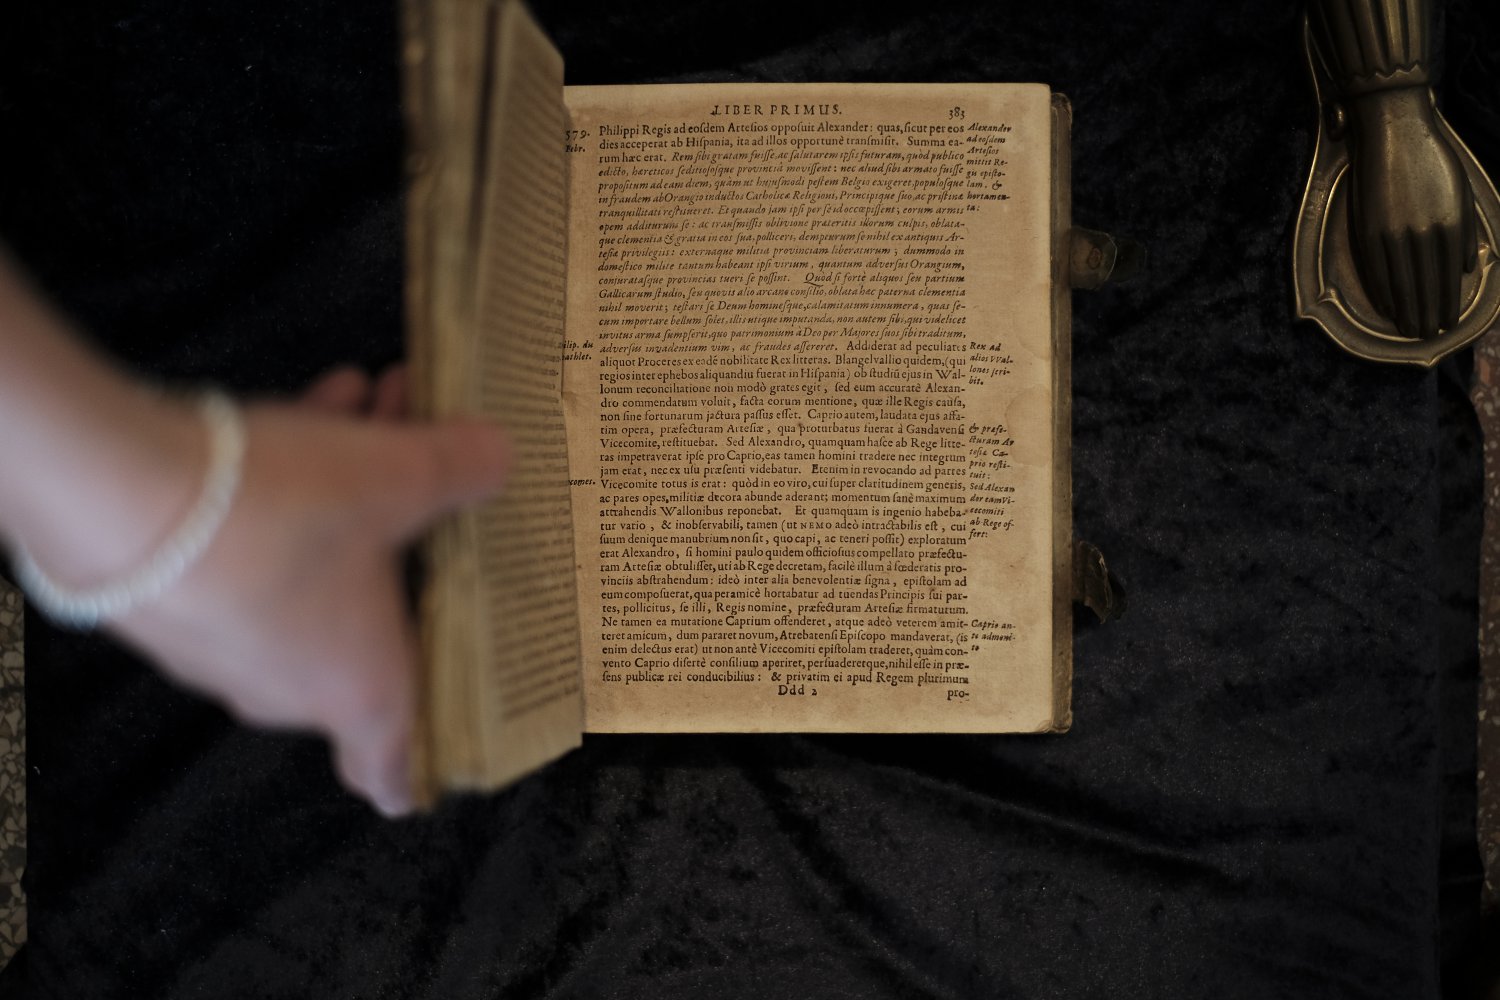 LIBER PRIMUS. 383
579. Philippi Regis ad eoſdem Arteſios oppoſuit Alexander: quas, ſicut per eos Alexander
Febr. dies acceperat ab Hiſpania, ita ad illos opportunè tranſmiſit. Summa ea- ad eoſdem
rum hæc erat. Rem ſibi gratam fuiſſe, ac ſalutarem ipſis futuram, quòd publico Arteſios
edicto, hæreticos ſeditioſoſque provinciâ moviſſent: nec aliud ſibi armato fuiſſe mittit Re-
propoſitum ad eam diem, quàm ut hujuſmodi peſtem Belgio exigeret, populoſque gis epiſto-
in fraudem ab Orangio inductos Catholicæ Religioni, Principique ſuo, ac priſtinæ lam, & hortamen-
tranquillitati reſtitueret. Et quando jam ipſi per ſe id occœpiſſent; eorum armis ta:
opem additurum ſe: ac tranſmiſſis oblivione præteritis illorum culpis, oblata-
que clementia & gratia in eos ſua, polliceri, dempturum ſe nihil ex antiquis Ar-
teſiæ privilegiis: externaque militiâ provinciam liberaturum; dummodo in
domeſtico milite tantum habeant ipſi virium, quantum adverſus Orangium,
conjuratаſque provincias tueri ſe poſſint. Quòd ſi fortè aliquos ſeu partium
Gallicarum ſtudio, ſeu quovis alio arcano conſilio, oblata hæc paterna clementia
nihil moverit; teſtari ſe Deum hominesque, calamitatum innumera, quas ſe-
cum importare bellum ſolet, illis utique imputanda, non autem ſibi, qui videlicet
invitus arma ſumpſerit, quo patrimonium à Deo per Majores ſuos ſibi traditum,
adverſus invadentium vim, ac fraudes aſſereret. Addiderat ad peculiares Rex ad
aliquot Proceres ex eadē nobilitate Rex litteras. Blangelvallio quidem, (qui alios VVal-
regios inter ephebos aliquandiu fuerat in Hiſpania) ob ſtudiū ejus in Wal- lones ſcri-
lonum reconciliatione non modò grates egit, ſed eum accuratè Alexan- bit.
dro commendatum voluit, facta eorum mentione, quæ ille Regis cauſa,
non ſine fortunarum jactura paſſus eſſet. Caprio autem, laudata ejus aſſa-
tim opera, præfecturam Arteſiæ, qua proturbatus fuerat à Gandavenſi & præfe-
Vicecomite, reſtituebat. Sed Alexandro, quamquam haſce ab Rege litte- cturam Ar
ras impetraverat ipſe pro Caprio, eas tamen homini tradere nec integrum teſiæ Ca-
jam erat, nec ex uſu præſenti videbatur. Etenim in revocando ad partes prio reſti-
tuit:
comes. Vicecomite totus is erat: quòd in eo viro, cui ſuper claritudinem generis, Sed Alexan
ac pares opes, militiæ decora abunde aderant; momentum ſanè maximum der eam Vi-
attrahendis Wallonibus reponebat. Et quamquam is ingenio habeba- cecomiti
tur vario, & inobſervabili, tamen (ut NEMO adeò intractabilis eſt, cui ab Rege of-
ſuum denique manubrium non ſit, quo capi, ac teneri poſſit) exploratum fert:
erat Alexandro, ſi homini paulo quidem officioſius compellato præfectu-
ram Arteſiæ obtuliſſet, uti ab Rege decretam, facilè illum à fœderatis pro-
vinciis abſtrahendum: ideò inter alia benevolentiæ ſigna, epiſtolam ad
eum compoſuerat, qua peramicè hortabatur ad tuendas Principis ſui par-
tes, pollicitus, ſe illi, Regis nomine, præfecturam Arteſiæ firmaturum.
Ne tamen ea mutatione Caprium offenderet, atque adeò veterem amit- Caprio an-
teret amicum, dum pararet novum, Atrebatenſi Epiſcopo mandaverat, (is te admoni-
enim delectus erat) ut non antè Vicecomiti epiſtolam traderet, quàm con- to
vento Caprio diſertè conſilium aperiret, perſuaderetque, nihil eſſe in præ-
ſens publicæ rei conducibilius: & privatim ei apud Regem plurimum
Ddd 2 pro-